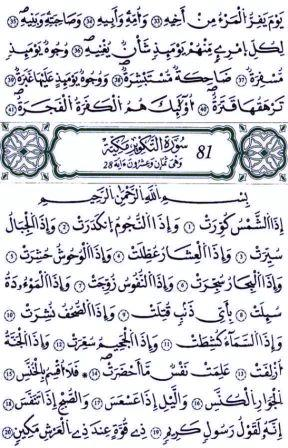 يَوْمَ يَفِرُّ الْمَرْءُ مِنْ أَخِيهِ 33 وَأُمِّهِ وَأَبِيهِ 34 وَصَاحِبَتِهِ وَبَنِيهِ 35
لِكُلِّ امْرِئٍ مِّنْهُمْ يَوْمَئِذٍ شَأْنٌ يُغْنِيهِ 36 وُجُوهٌ يَوْمَئِذٍ
مُّسْفِرَةٌ 37 ضَاحِكَةٌ مُّسْتَبْشِرَةٌ 38 وَوُجُوهٌ يَوْمَئِذٍ عَلَيْهَا غَبَرَةٌ 39
تَرْهَقُهَا قَتَرَةٌ 40 أُوْلَئِكَ هُمُ الْكَفَرَةُ الْفَجَرَةُ 41
81 سُورَةُ التَّكْوِيرِ مَكِّيَّةٌ
وَهِيَ ثَمَانٌ وَعِشْرُونَ ءَايَةً 28
بِسْمِ اللَّهِ الرَّحْمَٰنِ الرَّحِيمِ
إِذَا الشَّمْسُ كُوِّرَتْ 1 وَإِذَا النُّجُومُ انكَدَرَتْ 2 وَإِذَا الْجِبَالُ
سُيِّرَتْ 3 وَإِذَا الْعِشَارُ عُطِّلَتْ 4 وَإِذَا الْوُحُوشُ حُشِرَتْ 5
وَإِذَا الْبِحَارُ سُجِّرَتْ 6 وَإِذَا النُّفُوسُ زُوِّجَتْ 7 وَإِذَا الْمَوْءُودَةُ
سُئِلَتْ 8 بِأَيِّ ذَنبٍ قُتِلَتْ 9 وَإِذَا الصُّحُفُ نُشِرَتْ 10
وَإِذَا السَّمَاءُ كُشِطَتْ 11 وَإِذَا الْجَحِيمُ سُعِّرَتْ 12 وَإِذَا الْجَنَّةُ
أُزْلِفَتْ 13 عَلِمَتْ نَفْسٌ مَّا أَحْضَرَتْ 14 فَلَا أُقْسِمُ بِالْخُنَّسِ 15
الْجَوَارِ الْكُنَّسِ 16 وَالَّيْلِ إِذَا عَسْعَسَ 17 وَالصُّبْحِ إِذَا تَنَفَّسَ 18
إِنَّهُ لَقَوْلُ رَسُولٍ كَرِيمٍ 19 ذِي قُوَّةٍ عِندَ ذِي الْعَرْشِ مَكِينٍ 20